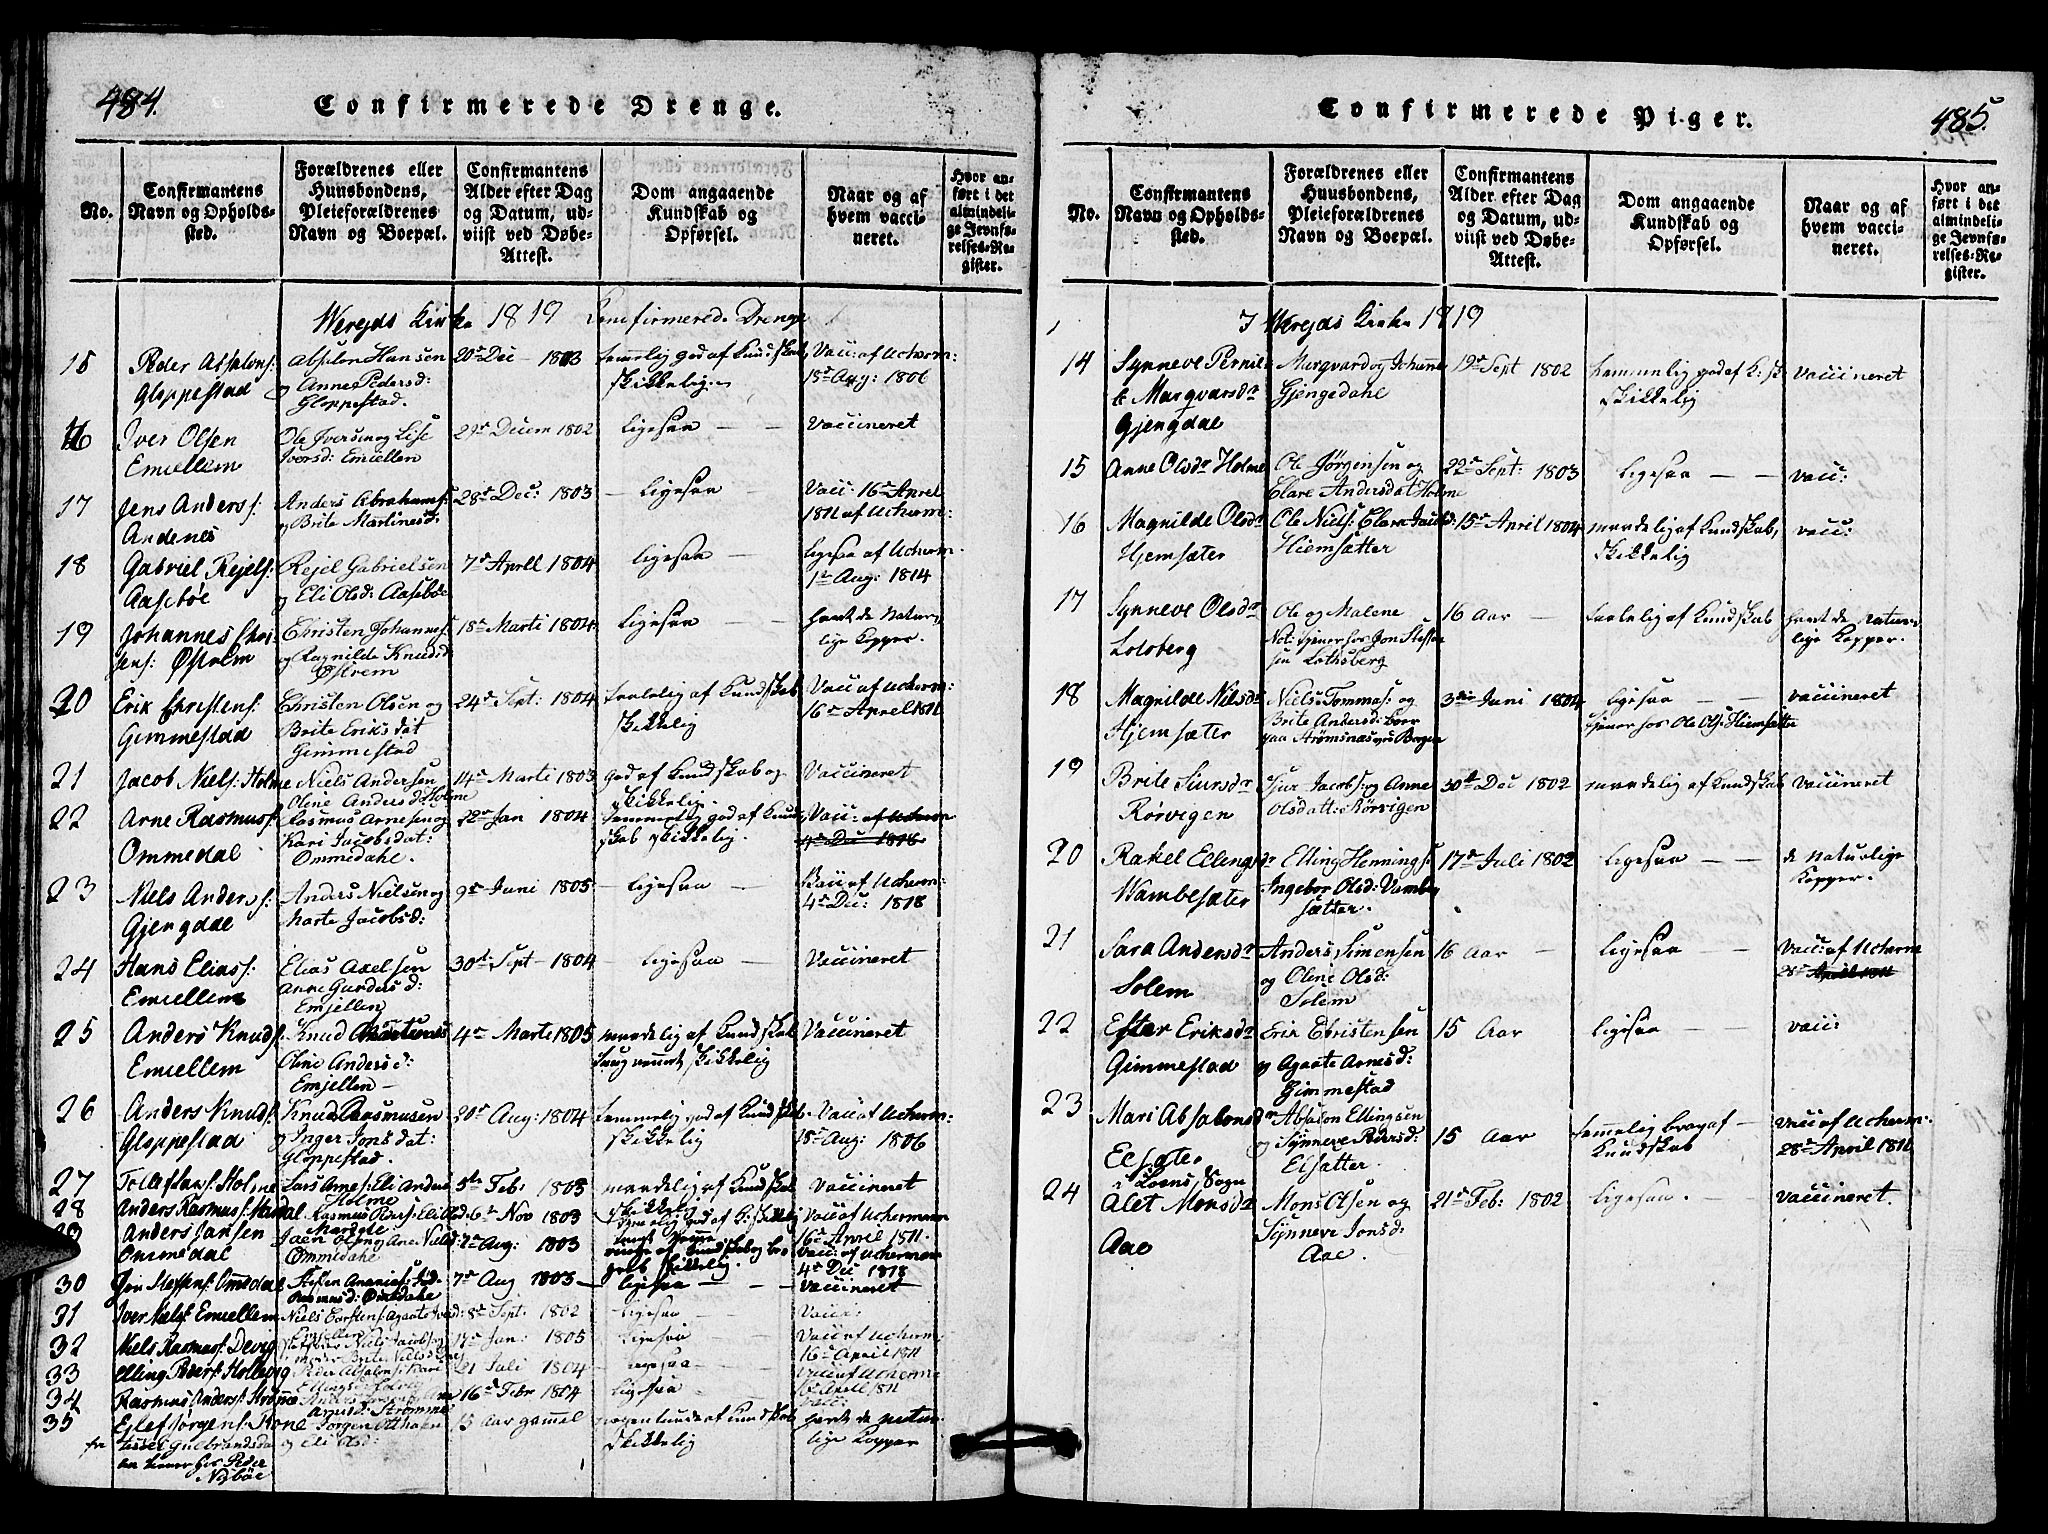 484.
Confirmerede Drenge.
No.
Confirmantens Navn og Opholds-sted.
Forældrenes eller Huusbondens, Pleieforældrenes Navn og Boepæl.
Confirmantens Alder efter Dag og Datum, ud-viist ved Døbe-Attest.
Dom angaaende Kundskab og Opførsel.
Naar og af hvem vacci-neret.
Hvor an-ført i det almindeli-ge Jevnfø-relses-Re-gister.
Werejds Kirke 1819 Confirmerede Drenge
15 Peder Absalons: Gloppestad
Absalon Hansen og Anne Peders d: Gloppestad.
20de Dec 1803
temmelig god af Kundskab, skikkelig
Vacc: af Ucherm: 18de Aug: 1806
16 Iver Olsen Emiellem
Ole Iversen og Lise Ivers d: Emiellem
29de Decem 1802
ligesaa
vaccineret
17 Jens Anders: Andenes
Anders Abrahams: og Brite Martines d:
28de Dec: 1803
ligesaa
Vacc: 16de April 1811 af Ucherm:
18 Gabriel Rejels: Aasebøe
Rejel Gabrielsen og Eli Ols d: Aasebøe
7de Aprill 1804
ligesaa
ligesaa af Ucherm. 1ste Aug: 1814
19 Johannes Chri-stens: Østrem
Christen Johannes: og Ragnilde Knuds d Østrem
18de Marti 1804
ligesaa
havt de Natur-lige Kopper.
20 Erik Christens: Gimmestad
Christen Olsen og Brite Eriks dat Gimmestad
24de Sept: 1804
taalelig af Kundskab skikkelig
Vacc af Ucherm: 16de April 1811
21 Jacob Niels: Holme
Niels Andersen Oline Anders d: Holme
14de Marti 1803
god af Kundskab og skikkelig.
Vaccineret
22 Arne Rasmus: Ommedal
Rasmus Arnesen og Kari Jacobs dat: Ommedahl.
22de Jan 1804
temmelig god af Kundskab skikkelig.
Vacc: af Ucherm 4de Dec 1818
23 Niels Anders: Gjengdal
Anders Nielsen og Marte Jacobs d:
9de Juni 1805
ligesaa
Vacc af Ucherm: 4de Dec: 1818
24 Hans Elias: Emiellem
Elias Axelsen Anne Gunders d: Emjellen
30de Sept 1804
ligesaa
Vaccineret
25 Anders Knuds: Emiellem
Knud Martines Oline Anders d: Emjellen
4de Marti 1805
maadelig af Kundskab skikkelig
Vaccineret
26 Anders Knuds: Gloppestad
Knud Rasmusen og Inger Jons dat: Gloppestad.
20de Aug: 1804
temmelig god af Kundskab skikkelig
Vacc af Ucherm: 18de Aug: 1806
27 Tollef Lars: Holme
Lars Arnes: Eli Anders Holme
5te Feb: 1803
maadelig af Kundskab
Vaccineret
28 Anders Rasmus: Mardal
Rasmus
6te Nov 1803
Vacc af Ucherman 16de April 1811.
29 Anders Jansen Ommedal
Ommedahl
7de Aug: 1803
Vacc: af Ucherman 4de Dec 1818
30 Jon Steffens: Ommedal
Steffen Ananias: Rasmus d: Omedahle
7de Aug 1803
ligesaa
Vaccineret
31 Iver Niels: Emiellem
Niels Carstens: Agaate Emjellen
8de Sept: 1802
ligesaa
Vacc:
32 Niels Rasmus: Devig
17de Jan: 1805
ligesaa
Vacc af Ucherm: 16de April 1811
33 Elling Peders: Hollevig
Peder Absalons:
21 Juli 1804
ligesaa
Vacc af Ucherm
34 Rasmus Anders: Strømme
Strømme
16de Febr 1804
ligesaa
vacc:
35 Ejlef Jørgens:
Jørgen og Eli Ols d:
15 Aar gammel
nogenlunde af Kundskab skikkelig
havde de natur-lige Kopper
485.
Confirmerede Piger.
No.
Confirmantens Navn og Opholds-sted.
Forældrenes eller Huusbondens, Pleieforældrenes Navn og Boepæl.
Confirmantens Alder efter Dag og Datum, ud-viist ved Døbe-Attest.
Dom angaaende Kundskab og Opførsel.
Naar og af hvem vacci-neret.
Hvor an-ført i det almindeli-ge Jevnfø-relses-Re-gister.
I Werejds Kirke 1819
14 Synneve Pernil-le Marqvarsdr Gjengdal
Marqvard og Johanne Gjengedahl
19de Sept 1802
temmelig god af K:sk skikkelig
vaccineret
15 Anne Olsdr Holme
Ole Jørgensen og Clare Andersdat Holme
22de Sept: 1803
ligesaa
vacc:
16 Magnilde Olsdr Hjemsæter
Ole Niels: Clara Hiemsætter
15de April 1804
maadelig af Kundskab, skikkelig
vacc:
17 Synneve Olsdr Lotsberg
Ole og Malene Not: tjener hos Jon Steffen-sen Lothsberg
16 Aar
taalelig af Kundskab
havt de natur-lige Kopper.
18 Magnilde Nielsdr Hjemsæter
Niels Tommas: og Brite Anders d: boer paa Strømsnæs ved Bergen
3die Juni 1804
ligesaa
tjener hos Ole Ols: Hiemsætte
vaccineret
19 Brite Siursdr Rørvigen
Sjur Jacobs: og Anne Olsdatt: Rørvigen
30te Dec 1802
maadelig af Kundskab
vaccineret
20 Rakel Ellings dr Wambesæter
Elling Hennings: Ingebor Ols d: Vambe-sætter.
17de Juli 1802
ligesaa
de Naturlige Kopper.
21 Sara Andersdr Solem
Anders Simensen og Oline Ols d: Solem
16 Aar
ligesaa
Vacc: af Ucherm 28de April 1811
22 Ester Eriksdr Gimmestad
Erik Christensen og Agaate Arnes d: Gimmestad
15 Aar
ligesaa
vacc:
23 Mari Absalonsdr
i Loens Sogn
Absalon Ellingsen og Synneve Peders d: Eisætter.
15 Aar
temmelig brav af Kundskab
Vacc af Ucherm: 28de April 1811
24 Alet Monsdr Aae
Mons Olsen og Synneve Jons d: Aae.
21de Feb: 1802
ligesaa.
vaccineret.